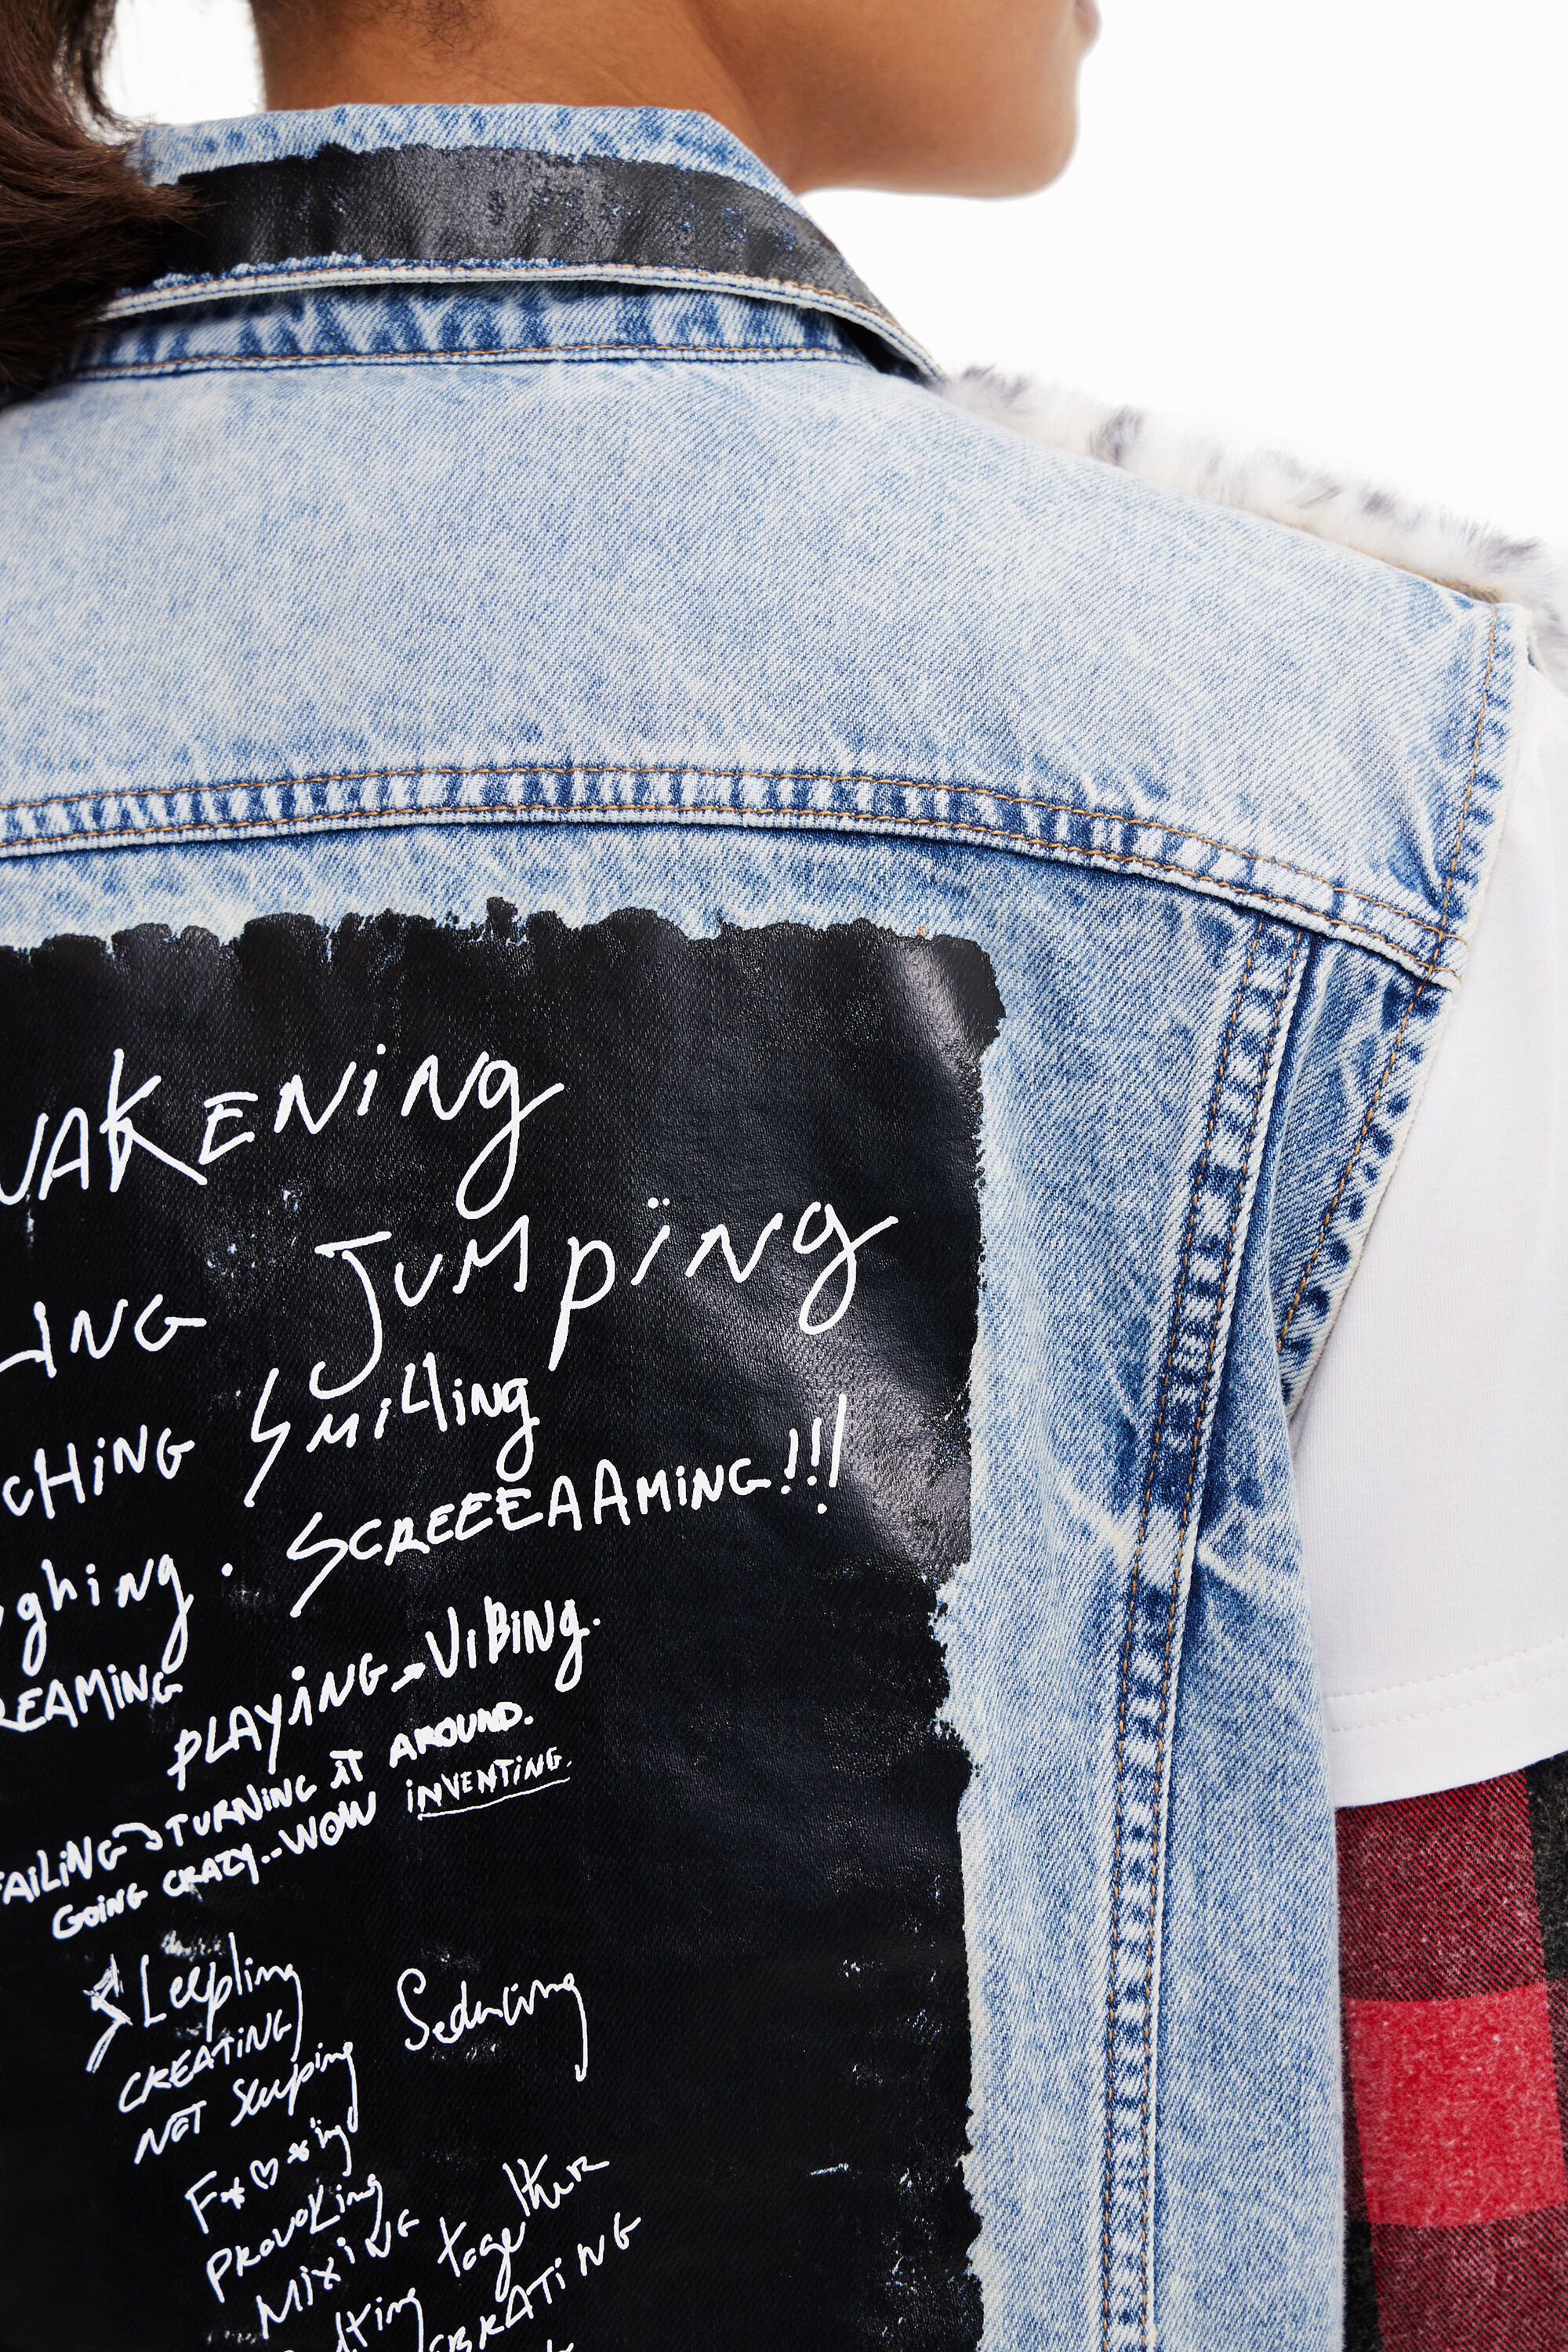 WAKENING
JUMPING
LING
SMiLLing
CHiNG
SCREEEAAMiNG!!!
ghing.
REAMING
PLAYiNG→ViBiNg.
FAiLiNG→TURNiNG iT AROUND.
GOiNG CRAZY..WOW iNVENTiNG.
SLeepling
CREATiNG
Seducing
NOT Sleeping
F*♡*ing
PROVOKing
MIXING together
BRATiNG